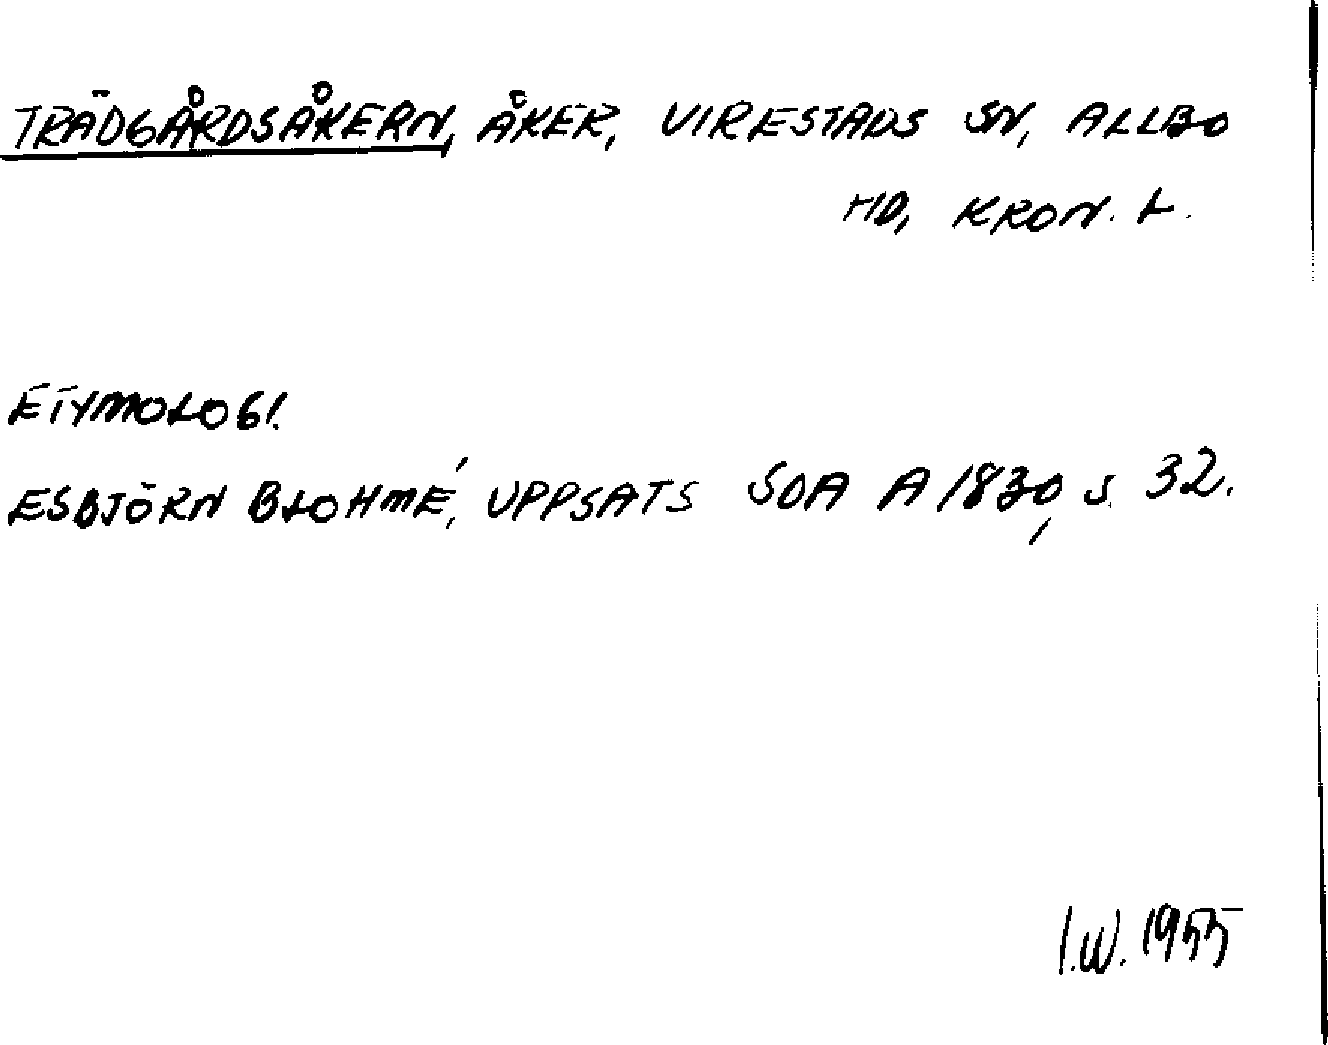 TRÄDGÅRDSÅKERN, ÅKER, VIRESTADS SN, ALLBO
HD, KRON. L.
ETYMOLOGI.
ESBJÖRN BLOHMÉ, UPPSATS SOA A 1830, S. 32.
I.W. 1955